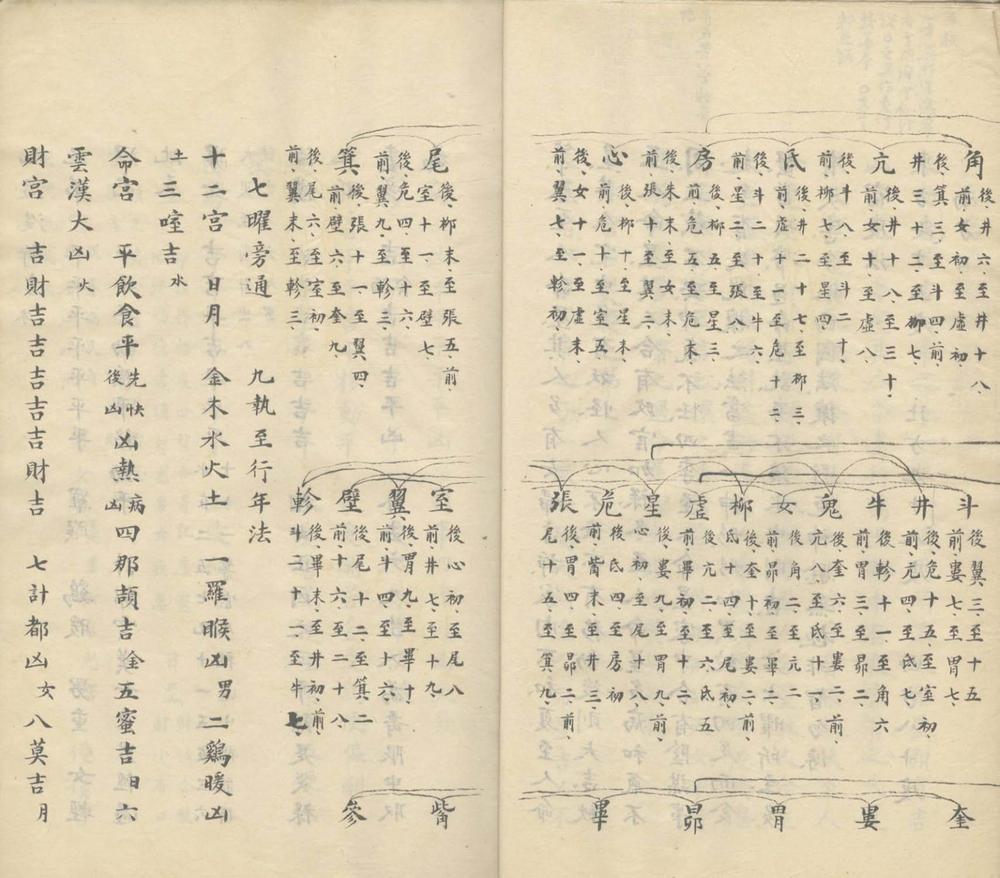 角 後、井六、至井十八
前、女初、至虛初、
後、箕三、至斗四、前
井三、十二、至柳七、
亢 後、井十八、至三十、
前、女十一、至虛八
後、斗八、至斗二十、
前、柳七、至星四、
氐 後、井二十七、至柳三、
前、虛十、至危十二、
後、斗二十、至牛六、
前、星二、至張八
房 後、柳五、至星三
前、危五、至危末、
後、牛末、至女末、
前、張十、至翼二、
心 後、柳十、至星末、
前、危十、至室五、
後、女十一、至虛末、
前、翼七、至軫初、
斗 後、翼三、至十五
前、婁七、至胃七、
井 後、危十五、至室初
前、亢四、至氐七、
牛 後、軫十一、至角六
前、婁六、至昴二、
鬼 後、奎六、至婁二、前
亢八、至氐十一、
女 後、角二、至亢二
前、昴初、至畢二、
柳 後、奎十、至婁二、前
氐十四、至尾初、
虛 後、亢二、至六、氐五
前、畢初、至十二、
星 後、婁九、至胃九、前、
心初、至尾十八、
危 後、氐四、至房初
前、觜末、至井三、
張 後、胃四、至昴二、前、
尾十五、至箕九、
奎
婁
胃
昴
畢
尾 後、柳末、至張五、前、
室十一、至壁七、
後、危四、至十六、
前、翼九、至軫三、
箕 後、張十一、至翼四、
前、壁六、至奎九
後、尾六、至室初、
前、翼末、至軫三、
室 後、心初、至尾八
前、井七、至十九
翼 後、胃九、至畢十、
前、斗四、至十六、
壁 後、尾十二、至箕二
前、十六、至二十八
軫 後、畢末、至井初、前、
斗二十二、至牛七、
觜
參
七曜旁通 九執至行年法
十二宮吉凶 日月 金木水火土 一羅睺凶男 二鷄暖凶
土 三啌吉水
命宮 平飲食平先快後凶凶熱病凶四那頡吉金五蜜吉日六
雲漢大凶火
財宮 吉財吉吉吉吉吉財吉 七計都凶女八莫吉月